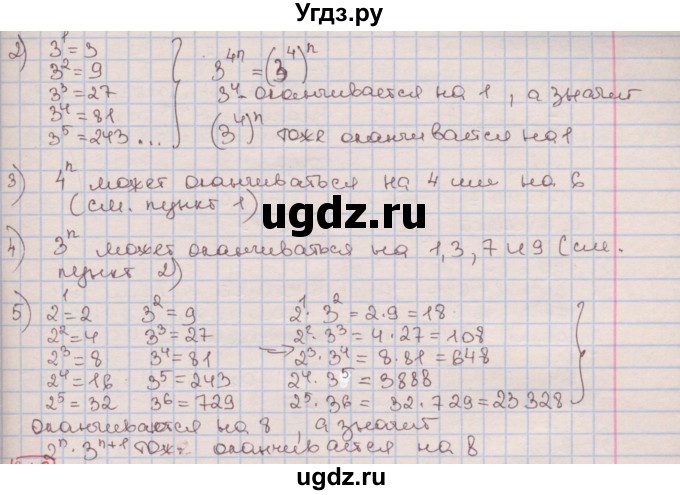 Угдз.ру
2) 3^1 = 3
3^2 = 9
3^3 = 27
3^4 = 81
3^5 = 243 ...
3^{4n} = (3^4)^n
3^4 - оканчивается на 1, а значит
(3^4)^n тоже оканчивается на 1
3) 4^n может оканчиваться на 4 или на 6
(см. пункт 1)
ugdz.ru
4) 3^n может оканчиваться на 1, 3, 7 и 9 (см.
пункт 2)
5) 2^1 = 2 3^2 = 9 2^1 · 3^2 = 2 · 9 = 18
2^2 = 4 3^3 = 27 2^2 · 3^3 = 4 · 27 = 108
2^3 = 8 3^4 = 81 → 2^3 · 3^4 = 8 · 81 = 648
2^4 = 16 3^5 = 243 2^4 · 3^5 = 3888
2^5 = 32 3^6 = 729 2^5 · 36 = 32 · 729 = 23 328
оканчивается на 8, а значит
2^n · 3^{n+1} тоже оканчивается на 8
ugdz.ru